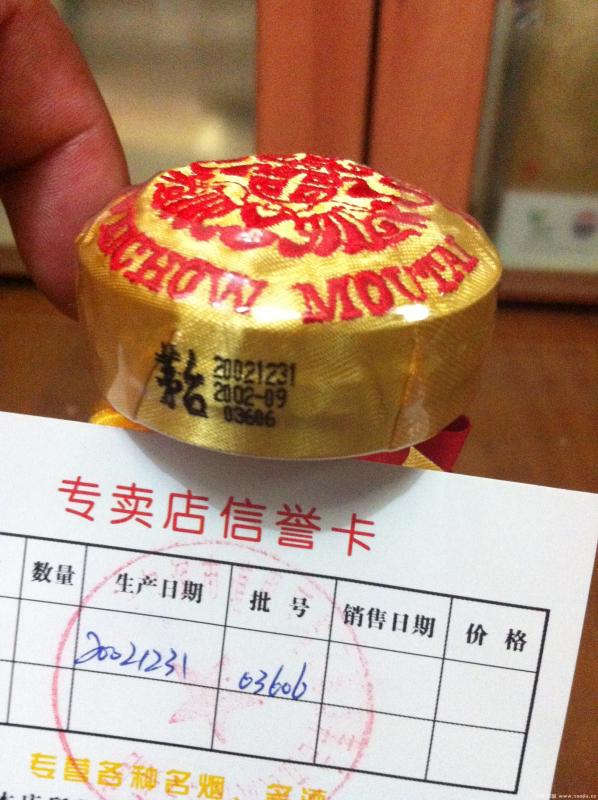 CHOW MOUTAI
茅台
20021231
2002-09
03606
专卖店信誉卡
数量 生产日期 批号 销售日期 价格
20021231 03606
专营各种名烟、名酒
www.taojiu.cn